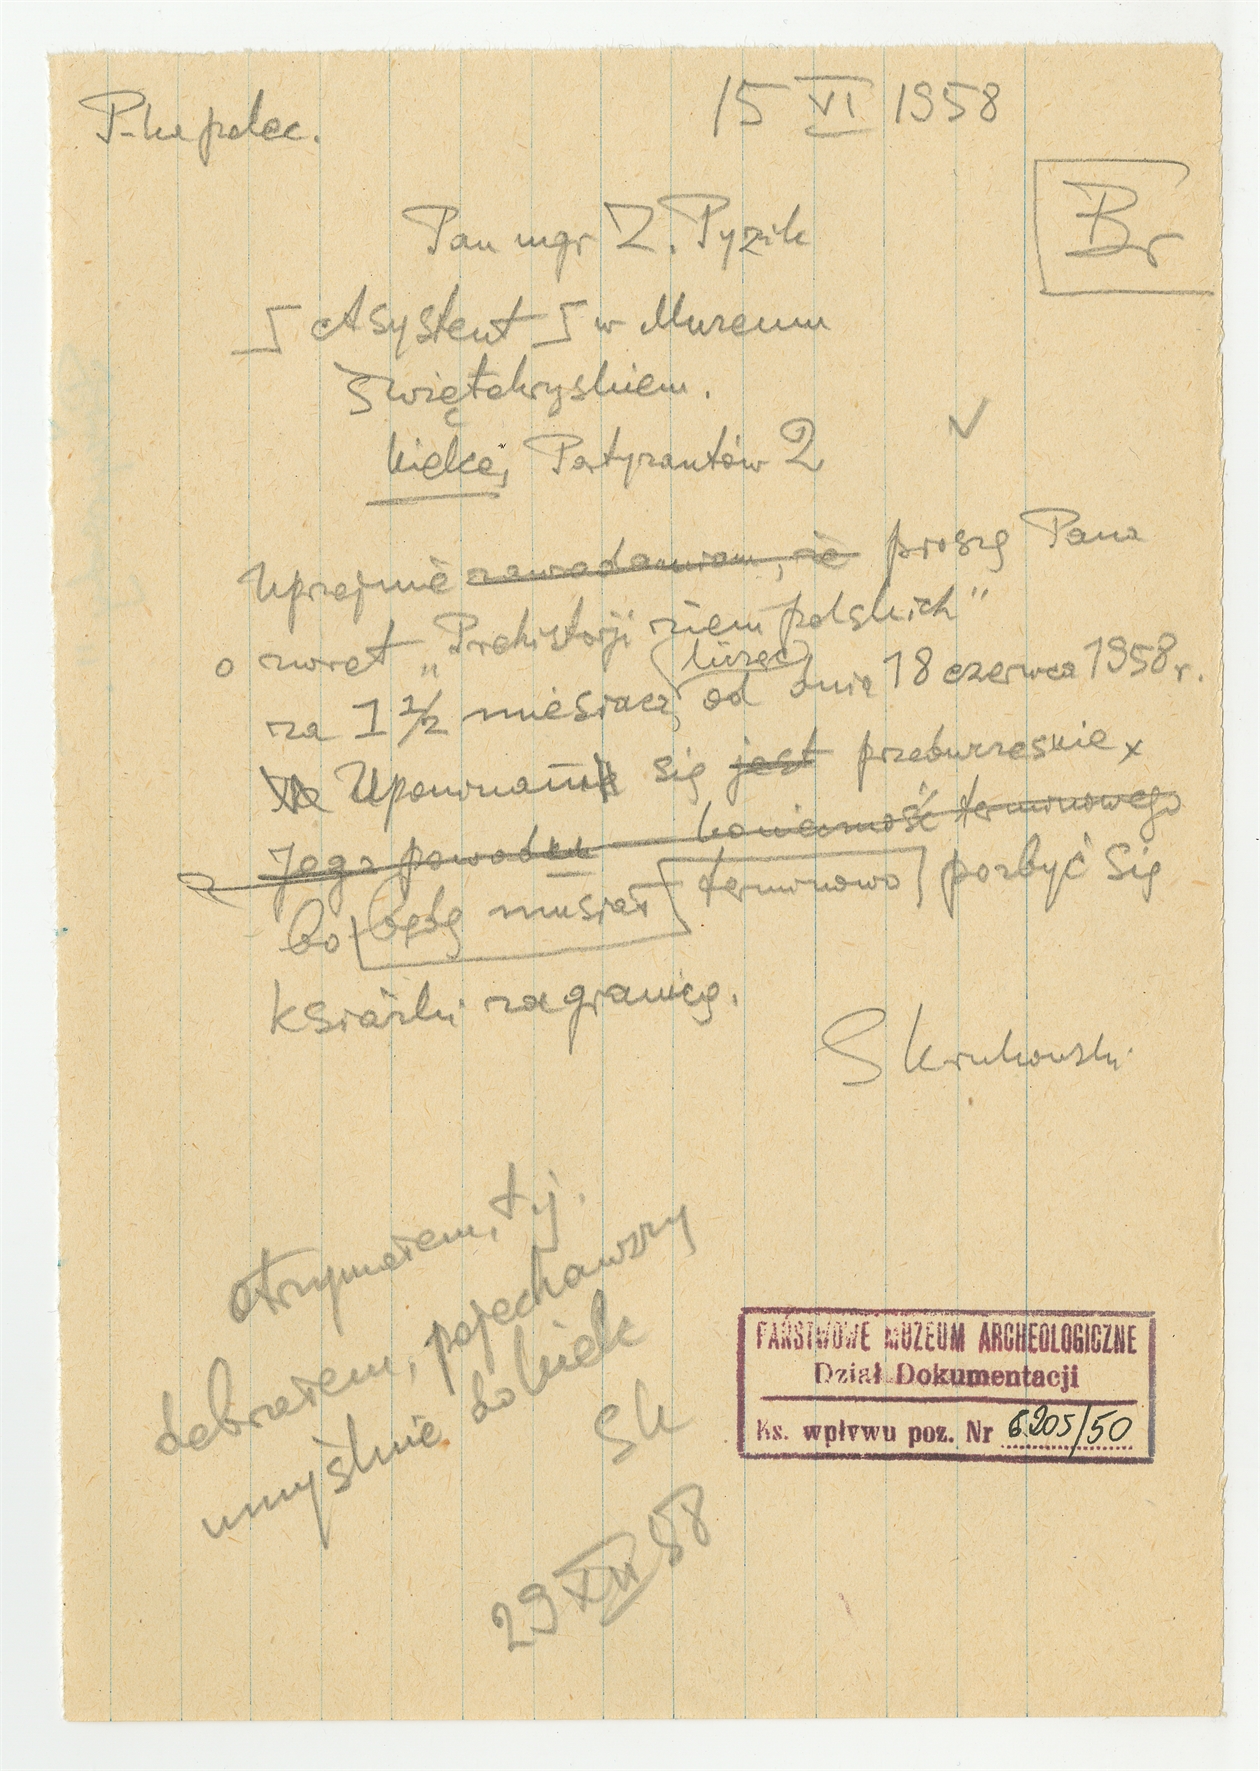 P-ka polec.
15 VI 1958
Br
Pan mgr Z. Pyzik
Asystent w Muzeum
Świętokrzyskiem.
Kielce, Partyzantów 2
Uprzejmie zawiadamiam, że proszę Pana
o zwrot „Prehistorji ziem polskich"
(licząc)
za 1 1/2 miesiąca, od dnia 18 czerwca 1958 r.
Upominam się jest
Jego powodu konieczność terminowego
bo będę musiał terminowo pozbyć się
książki zagranicę.
S Krukowski
otrzymałem, tj.
odebrałem, pojechawszy
umyślnie do Kielc
SK
29 XII 58
PAŃSTWOWE MUZEUM ARCHEOLOGICZNE
Dział Dokumentacji
Ks. wpływu poz. Nr 6205/50